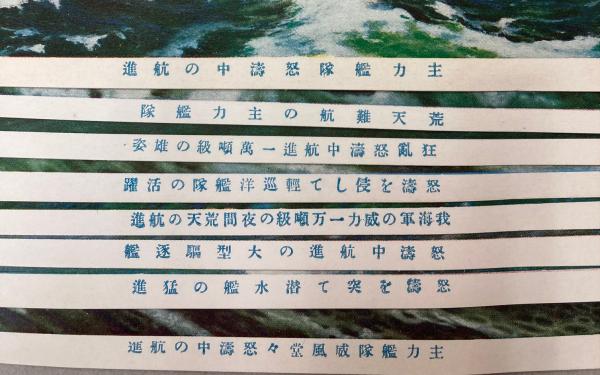 主力艦隊怒濤中の航進
荒天難航の主力艦隊
狂亂怒濤中航進一萬噸級の雄姿
怒濤を侵して輕巡洋艦隊の活躍
我海軍の威力一万噸級の夜間荒天の航進
怒濤中航進の大型驅逐艦
怒濤を突て潜水艦の猛進
主力艦隊威風堂々怒濤中の航進